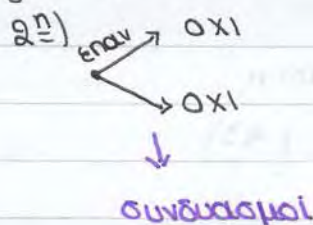 2η)
επαν
ΟΧΙ
ΟΧΙ
συνδυασμοί